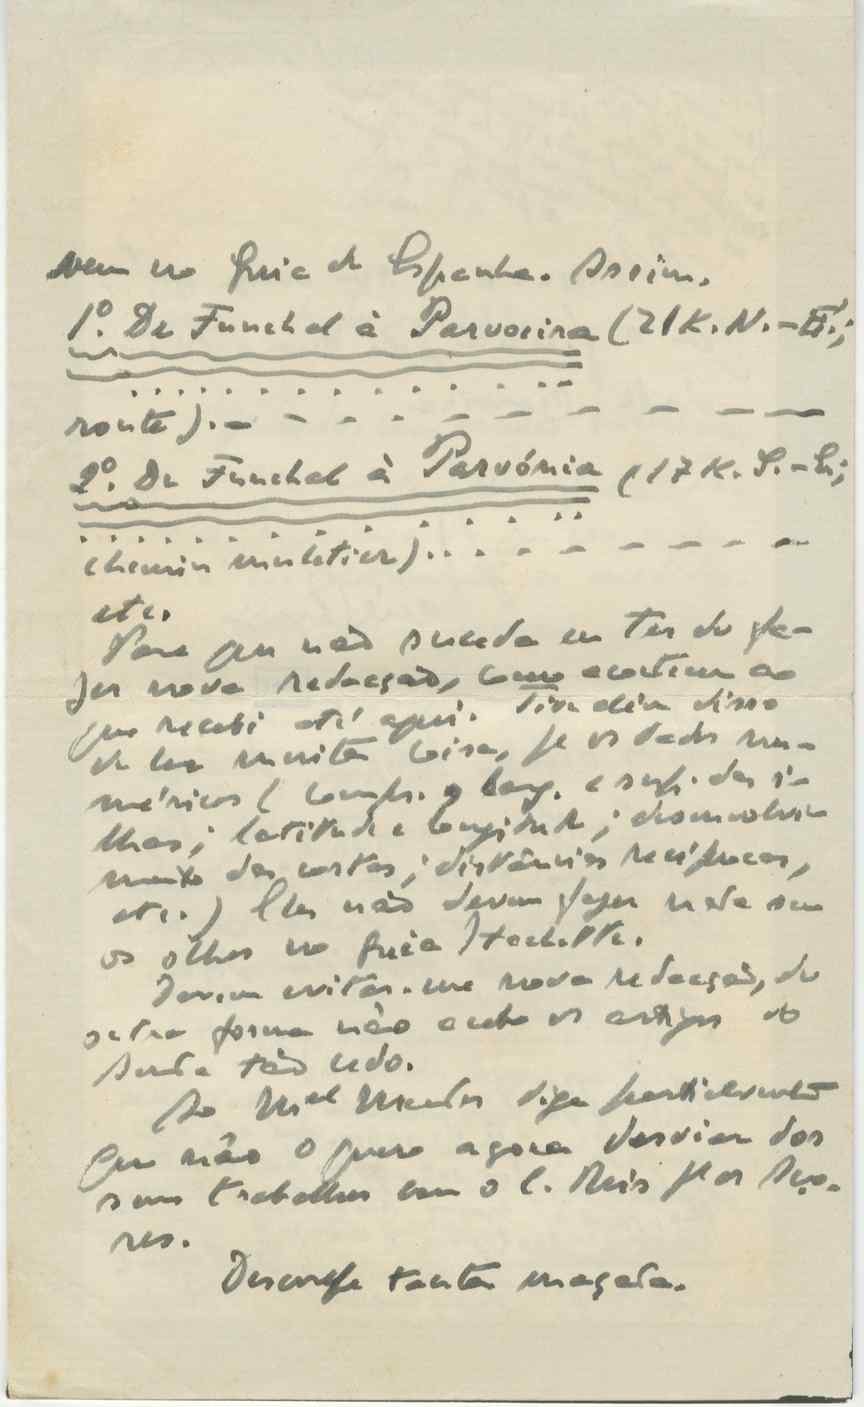 vem no Guia de Espanha. Assim.
1º. De Funchal à Parvoeira (21 K. N.-E.;
route).
2º. De Funchal à Parvónia (17 K. S.-E;
chemin muletier)...
etc.
Para que não suceda eu ter de fa-
zer nova redacção, como acontece ao
que recebi até aqui. Tive além disso
de ler muita coisa, p.ª os dados nu-
méricos (compr. e larg. e supf. das i-
lhas; latitude e longitude; desenvolvi-
mento das costas; distâncias recíprocas,
etc.) Eles não devem fazer nada sem
os olhos no Guia Hachette.
Devem evitar-me nova redacção, de
outra forma não acabo os artigos do
tão cedo.
Ao M.el Mendes diga particularmente
que não o quero agora desviar dos
seus trabalhos com o C. Reis p.ª os Aço-
res.
Desculpe tanta maçada.